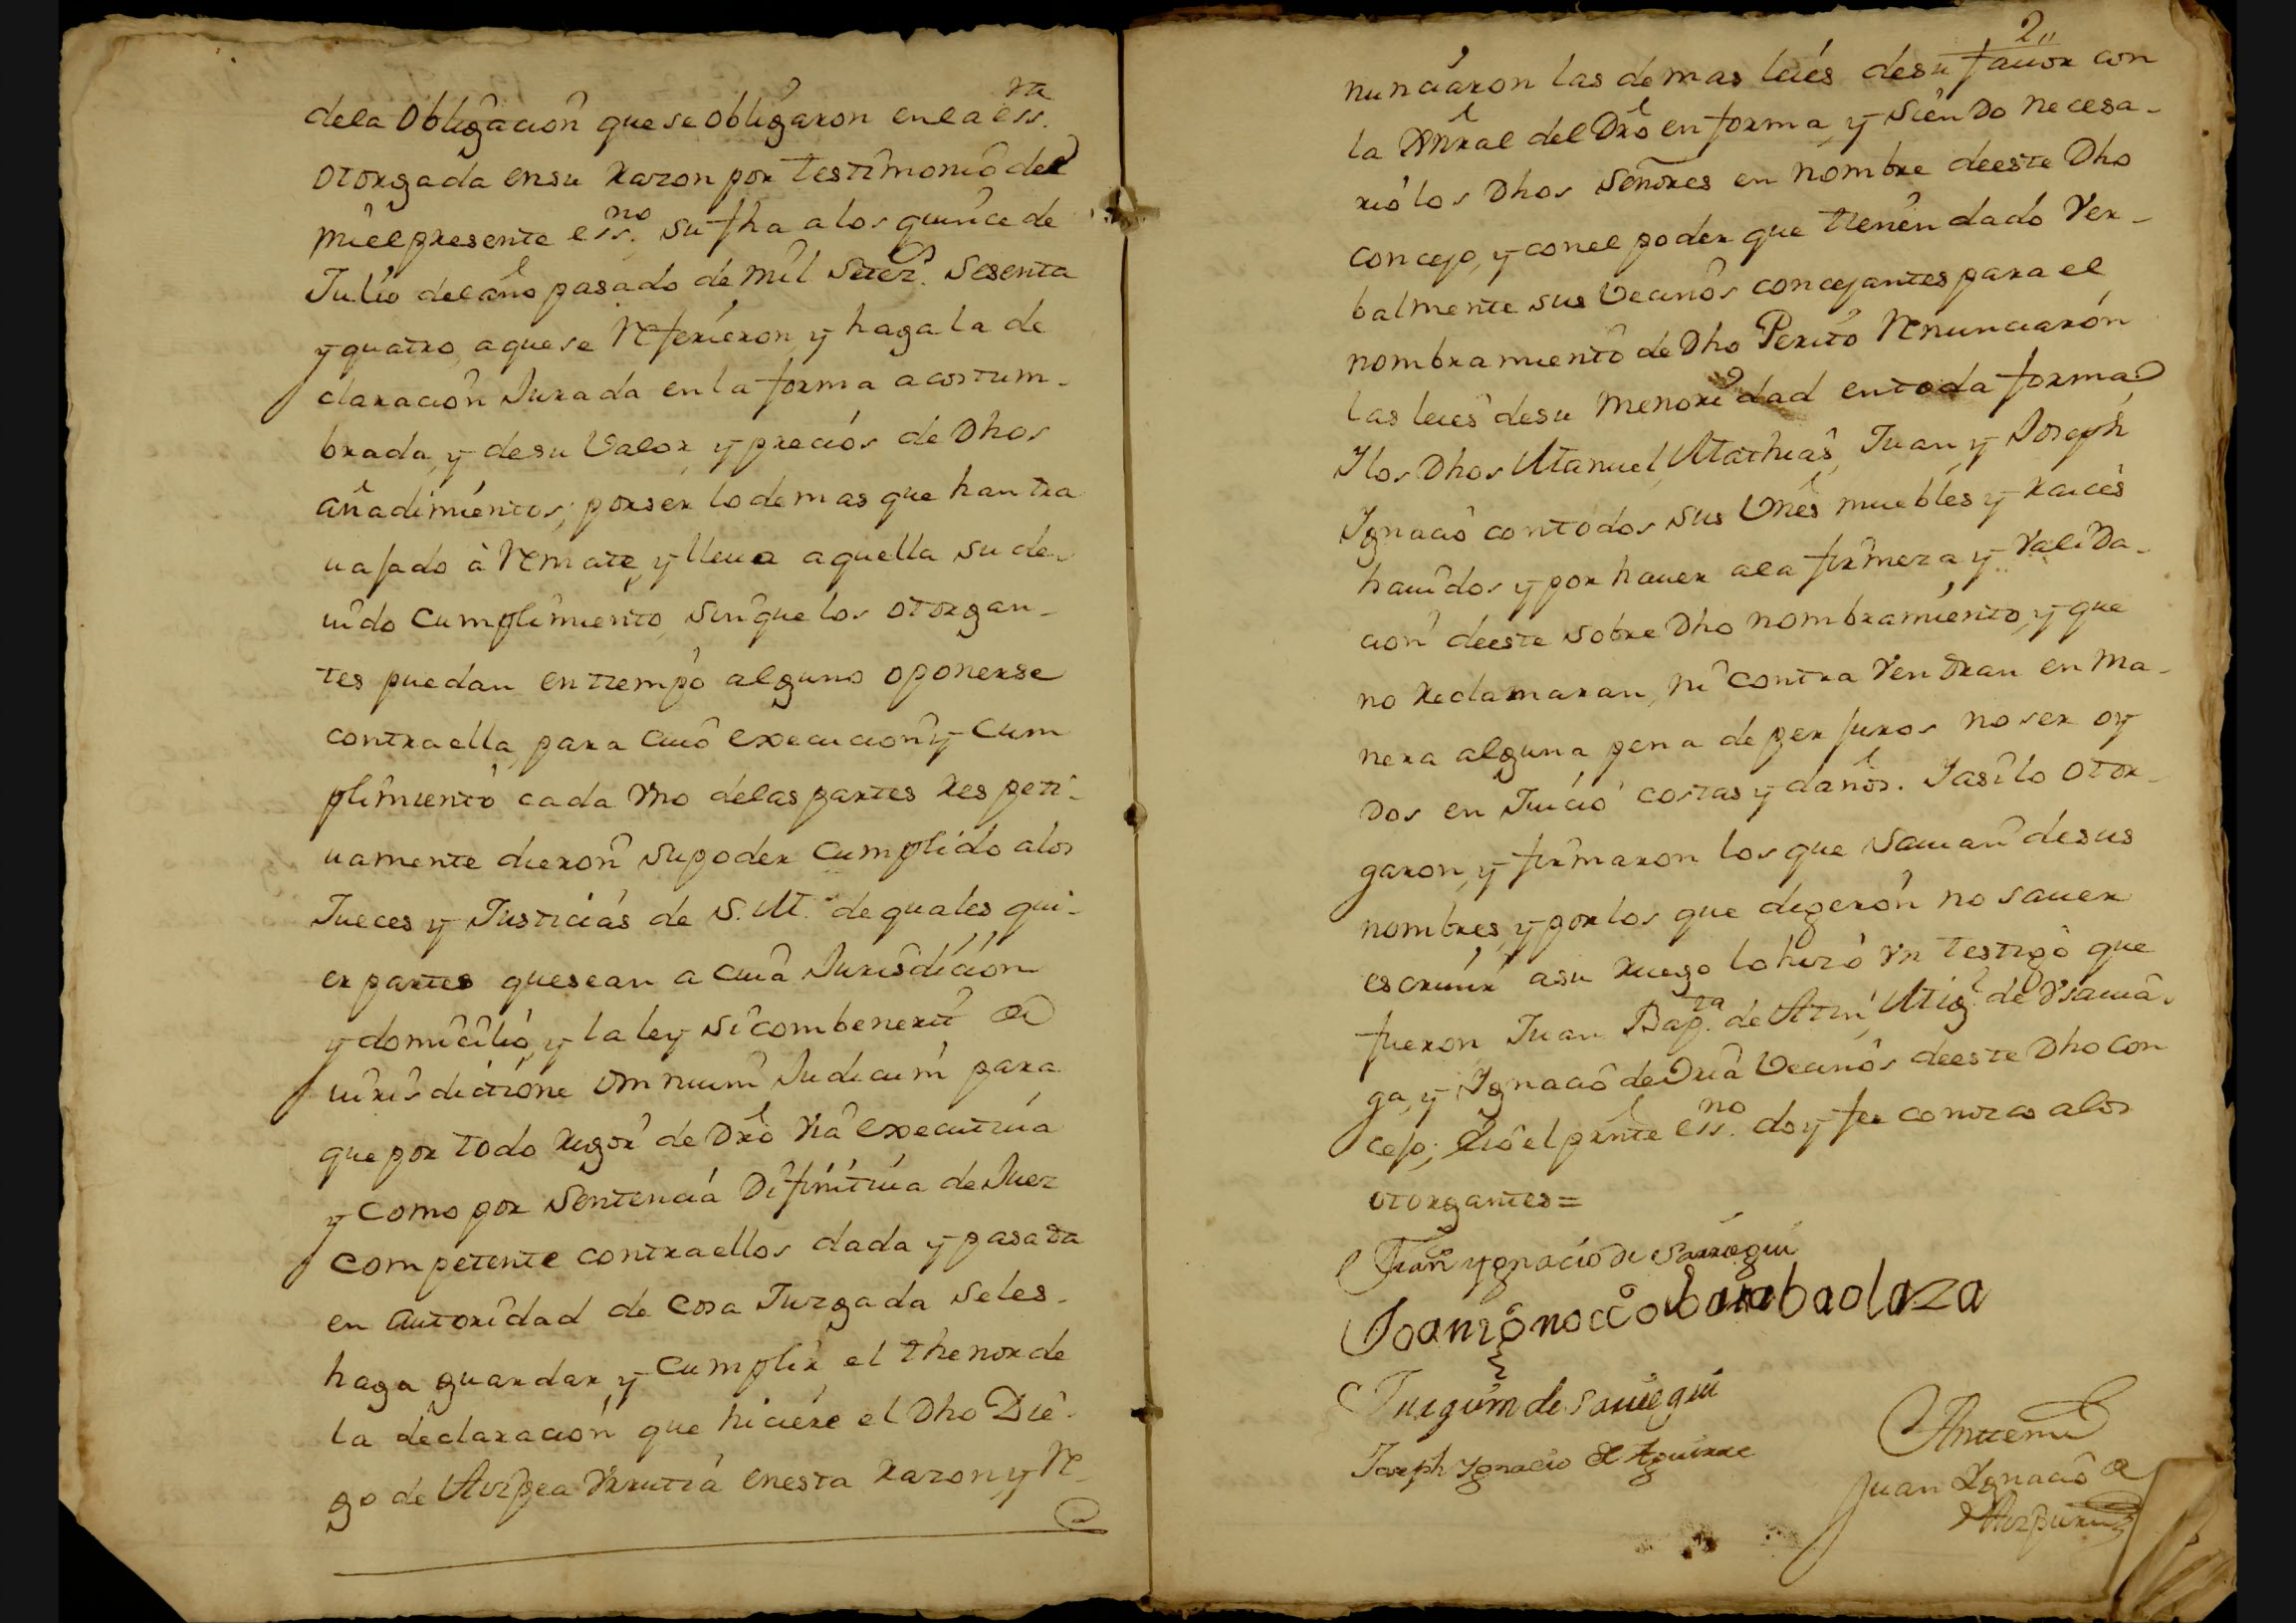 dela obligacion que se obligaron en la ess.ra
otorgada en su razon por testimonio de
mi el presente ess.no su fha a los quince de
Julio del año pasado de mil Setez.s sesenta
y quatro, a que se refirieron y haga la de
claracion Jurada en la forma acostum-
brada, y de su Valor y precios de Dhos
añadimientos; por ser lo demas que han tra
uajado à remate, y lleua aquella su de-
uido cumplimiento, sin que los otorgan-
tes puedan en tiempo alguno oponerse
contra ella, para cuio execucion y cum
plimiento cada vno delas partes respeti-
uamente dieron su poder cumplido alos
Jueces y Justicias de S. M. de quales qui-
er partes que sean a cuia Jurisdicion
y domicilio, y la ley si combenerit de
iurisdictione omnium Judicum para
que por todo rigor de Dro via executiua
y como por sentencia Difinitiua de Juez
competente contra ellos dada y pasada
en autoridad de cosa Juzgada seles-
haga guardar y cumplir el thenor de
la declaracion que hiciere el Dho Die-
go de Aizpea Vrrutia en esta razon, y re-
2,,
nunciaron las demas leies de su fauor con
la Gnral del Dro en forma, y siendo necesa-
rio los Dhos Señores en nombre de este Dho
concejo, y con el poder que tienen dado Ver-
balmente sus Vecinos concejantes para el
nombramiento de Dho Perito renunciaron
las leies de su menoridad en toda forma,
I los Dhos Manuel, Mathias, Juan y Joseph
Ignacio con todos sus Vnes muebles y raices
hauidos y por hauer a la firmeza y valida-
cion de este sobre Dho nombramiento, y que
no reclamaran, ni contra vendran en ma-
nera alguna pena de perjuros no ser oy
dos en Juicio costas y daños. I asi lo otor-
garon, y firmaron los que sauian de sus
nombres, y por los que digeron no sauer
escriuir a su ruego lo hizo vn testigo que
fueron Juan Bap.ta de Atin, Mig.l de Vsauia-
ga, y Ignacio de Vria Vecinos de este Dho con
cejo; è io el prnte ess.no doy fee conozco alos
otorgantes =
Juan ygnacio de Sarriegui
Joan ignacio barrbaolaza
Juaquim de Sarriegui
Joseph Ygnacio de Aguirre
Antemi
Juan Ignacio de
Aizpuru